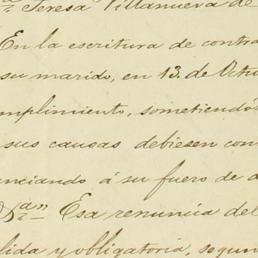 a. Teresa Villanueva de
En la escritura de contra
su marido, en 13 de Octu
mplimiento, sometiéndo
sus causas debiesen con
unciando á su fuero de d
Esa renuncia del
lida y obligatoria, segun